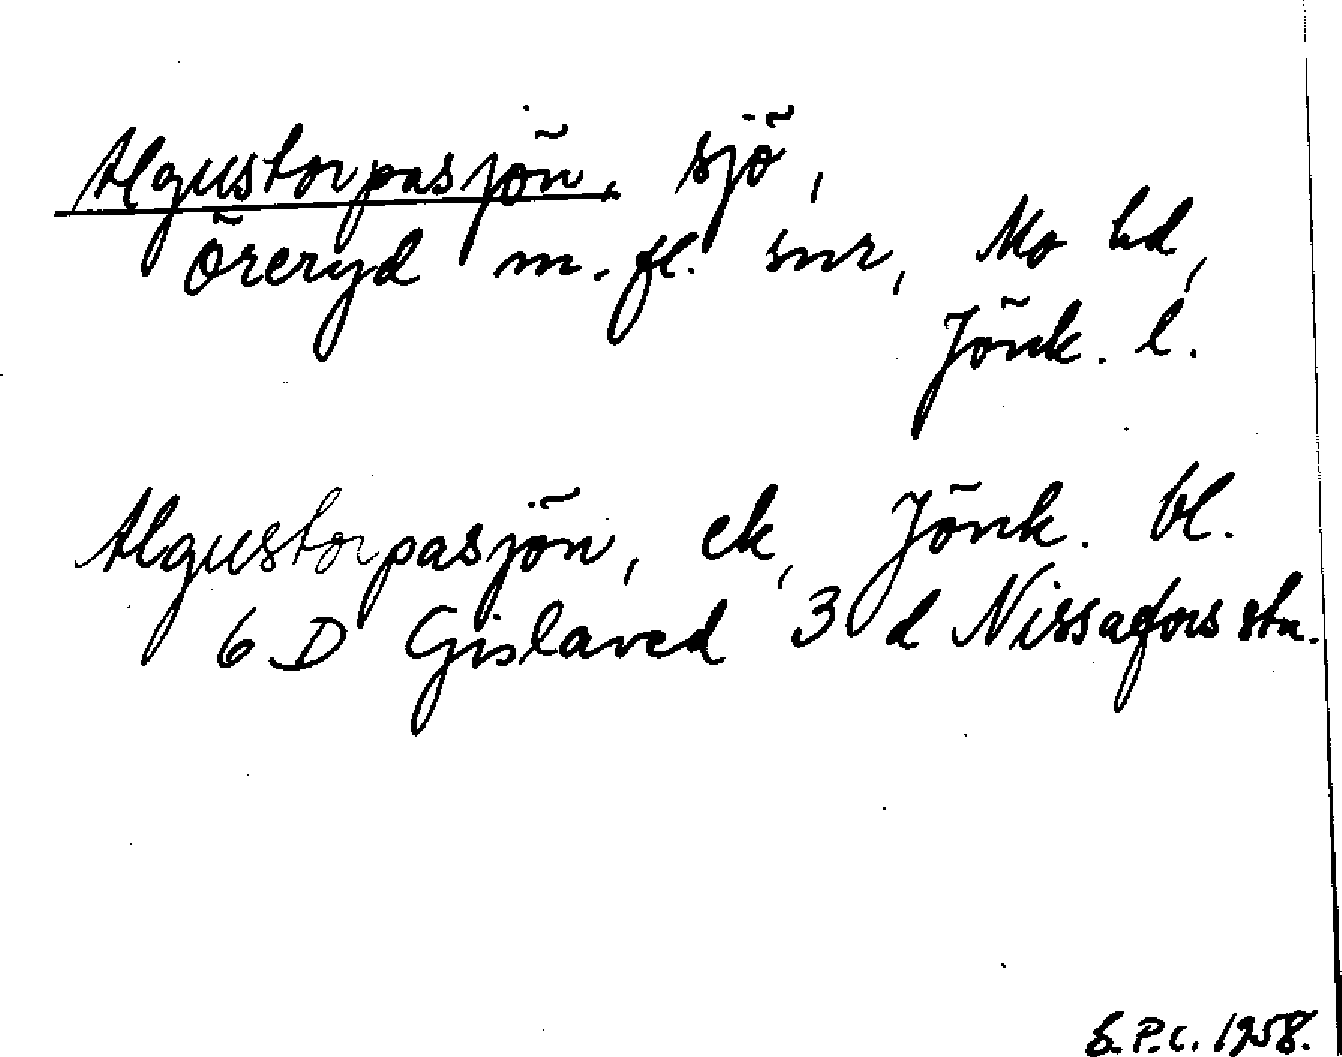 Algustorpasjön, sjö,
Öreryd m. fl. snr, Mo hd,
Jönk. l.
Algustorpasjön, ek, Jönk. bl.
6 D Gislaved 3 d Nissafors stn.
S.P.C. 1958.